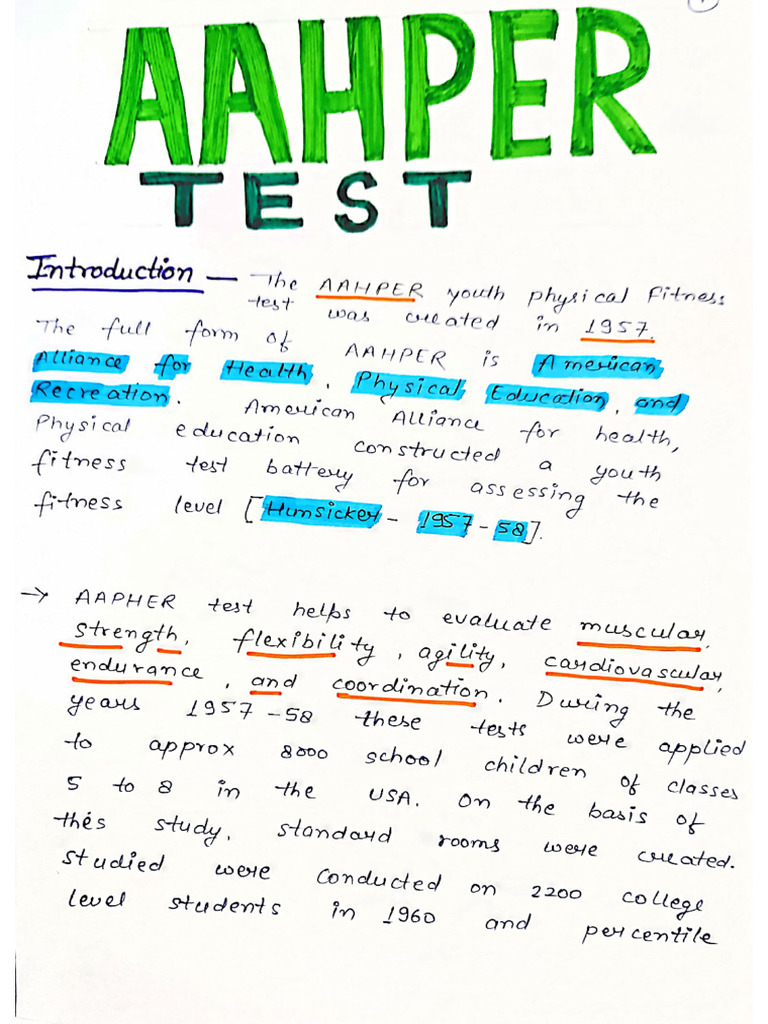 AAHPER
TEST
Introduction — The AAHPER youth physical fitness
test was created in 1957.
The full form of AAHPER is American
Alliance for Health, Physical, Education, and
Recreation. American Alliance for health,
Physical education constructed a youth
fitness test battery for assessing the
fitness level [Hunsicker - 1957-58].
→ AAPHER test helps to evaluate muscular,
strength, flexibility, agility, cardiovascular,
endurance, and coordination. During the
years 1957-58 these tests were applied
to approx 8000 school children of classes
5 to 8 in the USA. On the basis of
this study, standard rooms were created.
Studied were conducted on 2200 college
level students in 1960 and percentile